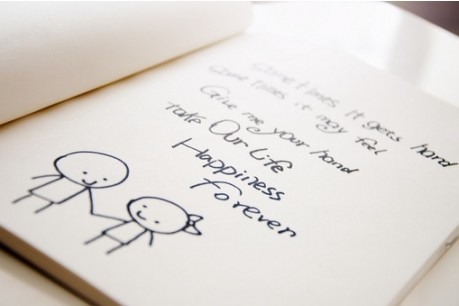 Sometimes it gets hard
Sometimes it may feel
Give me your hand
take Our Life
Happiness
forever